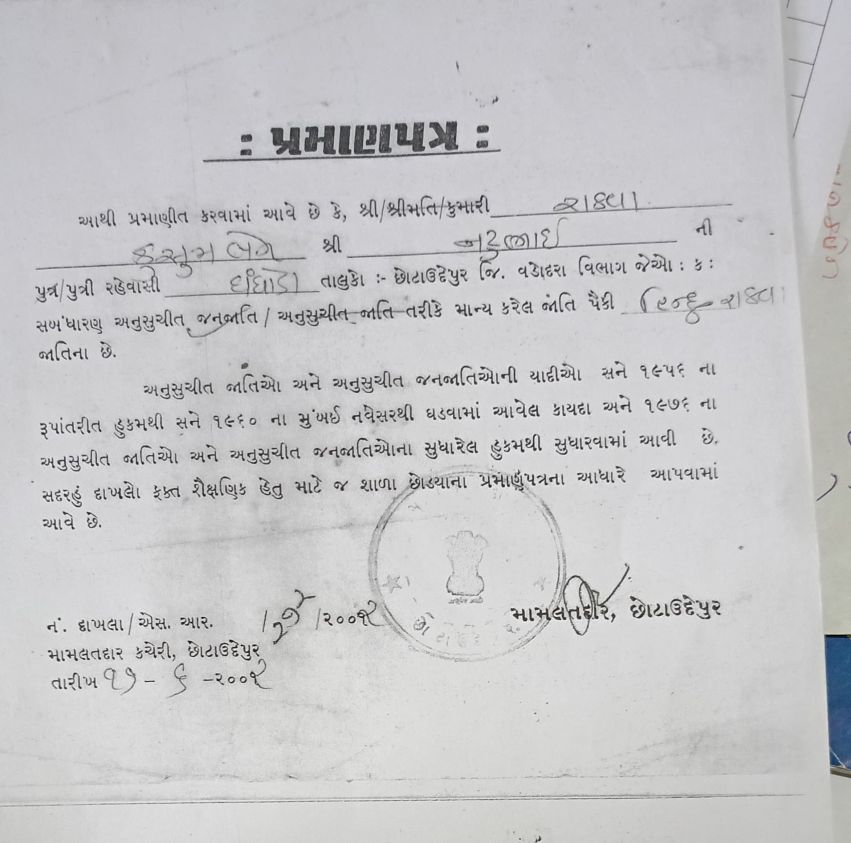 : પ્રમાણપત્ર :
આથી પ્રમાણીત કરવામાં આવે છે કે, શ્રી/શ્રીમતિ/કુમારી રાઠવા
કસુમબેન શ્રી નટુભાઈ ની
પુત્ર/પુત્રી રહેવાસી તાલુકો :- છોટાઉદેપુર જિ. વડોદરા વિભાગ જેઓ : ક :
સબંધારણ અનુસુચીત જનજાતિ / અનુસુચીત જાતિ તરીકે માન્ય કરેલ જાંતિ પૈકી હિન્દુ રાઠવા
જાતિના છે.
અનુસુચીત જાતિઓ અને અનુસુચીત જનજાતિઓની યાદીઓ સને ૧૯૫૬ ના
રૂપાંતરીત હુકમથી સને ૧૯૬૦ ના મુંબઈ નવેસરથી ઘડવામાં આવેલ કાયદા અને ૧૯૭૬ ના
અનુસુચીત જાતિઓ અને અનુસુચીત જનજાતિઓના સુધારેલ હુકમથી સુધારવામાં આવી છે.
સદરહું દાખલો ફક્ત શૈક્ષણિક હેતુ માટે જ શાળા છોડયાના પ્રમાણપત્રના આધારે આપવામાં
આવે છે.
નં. દાખલા/એસ. આર. /૨૦૦૧
મામલતદાર, છોટાઉદેપુર
મામલતદાર કચેરી, છોટાઉદેપુર
તારીખ ૧૧ - ૬ -૨૦૦૧